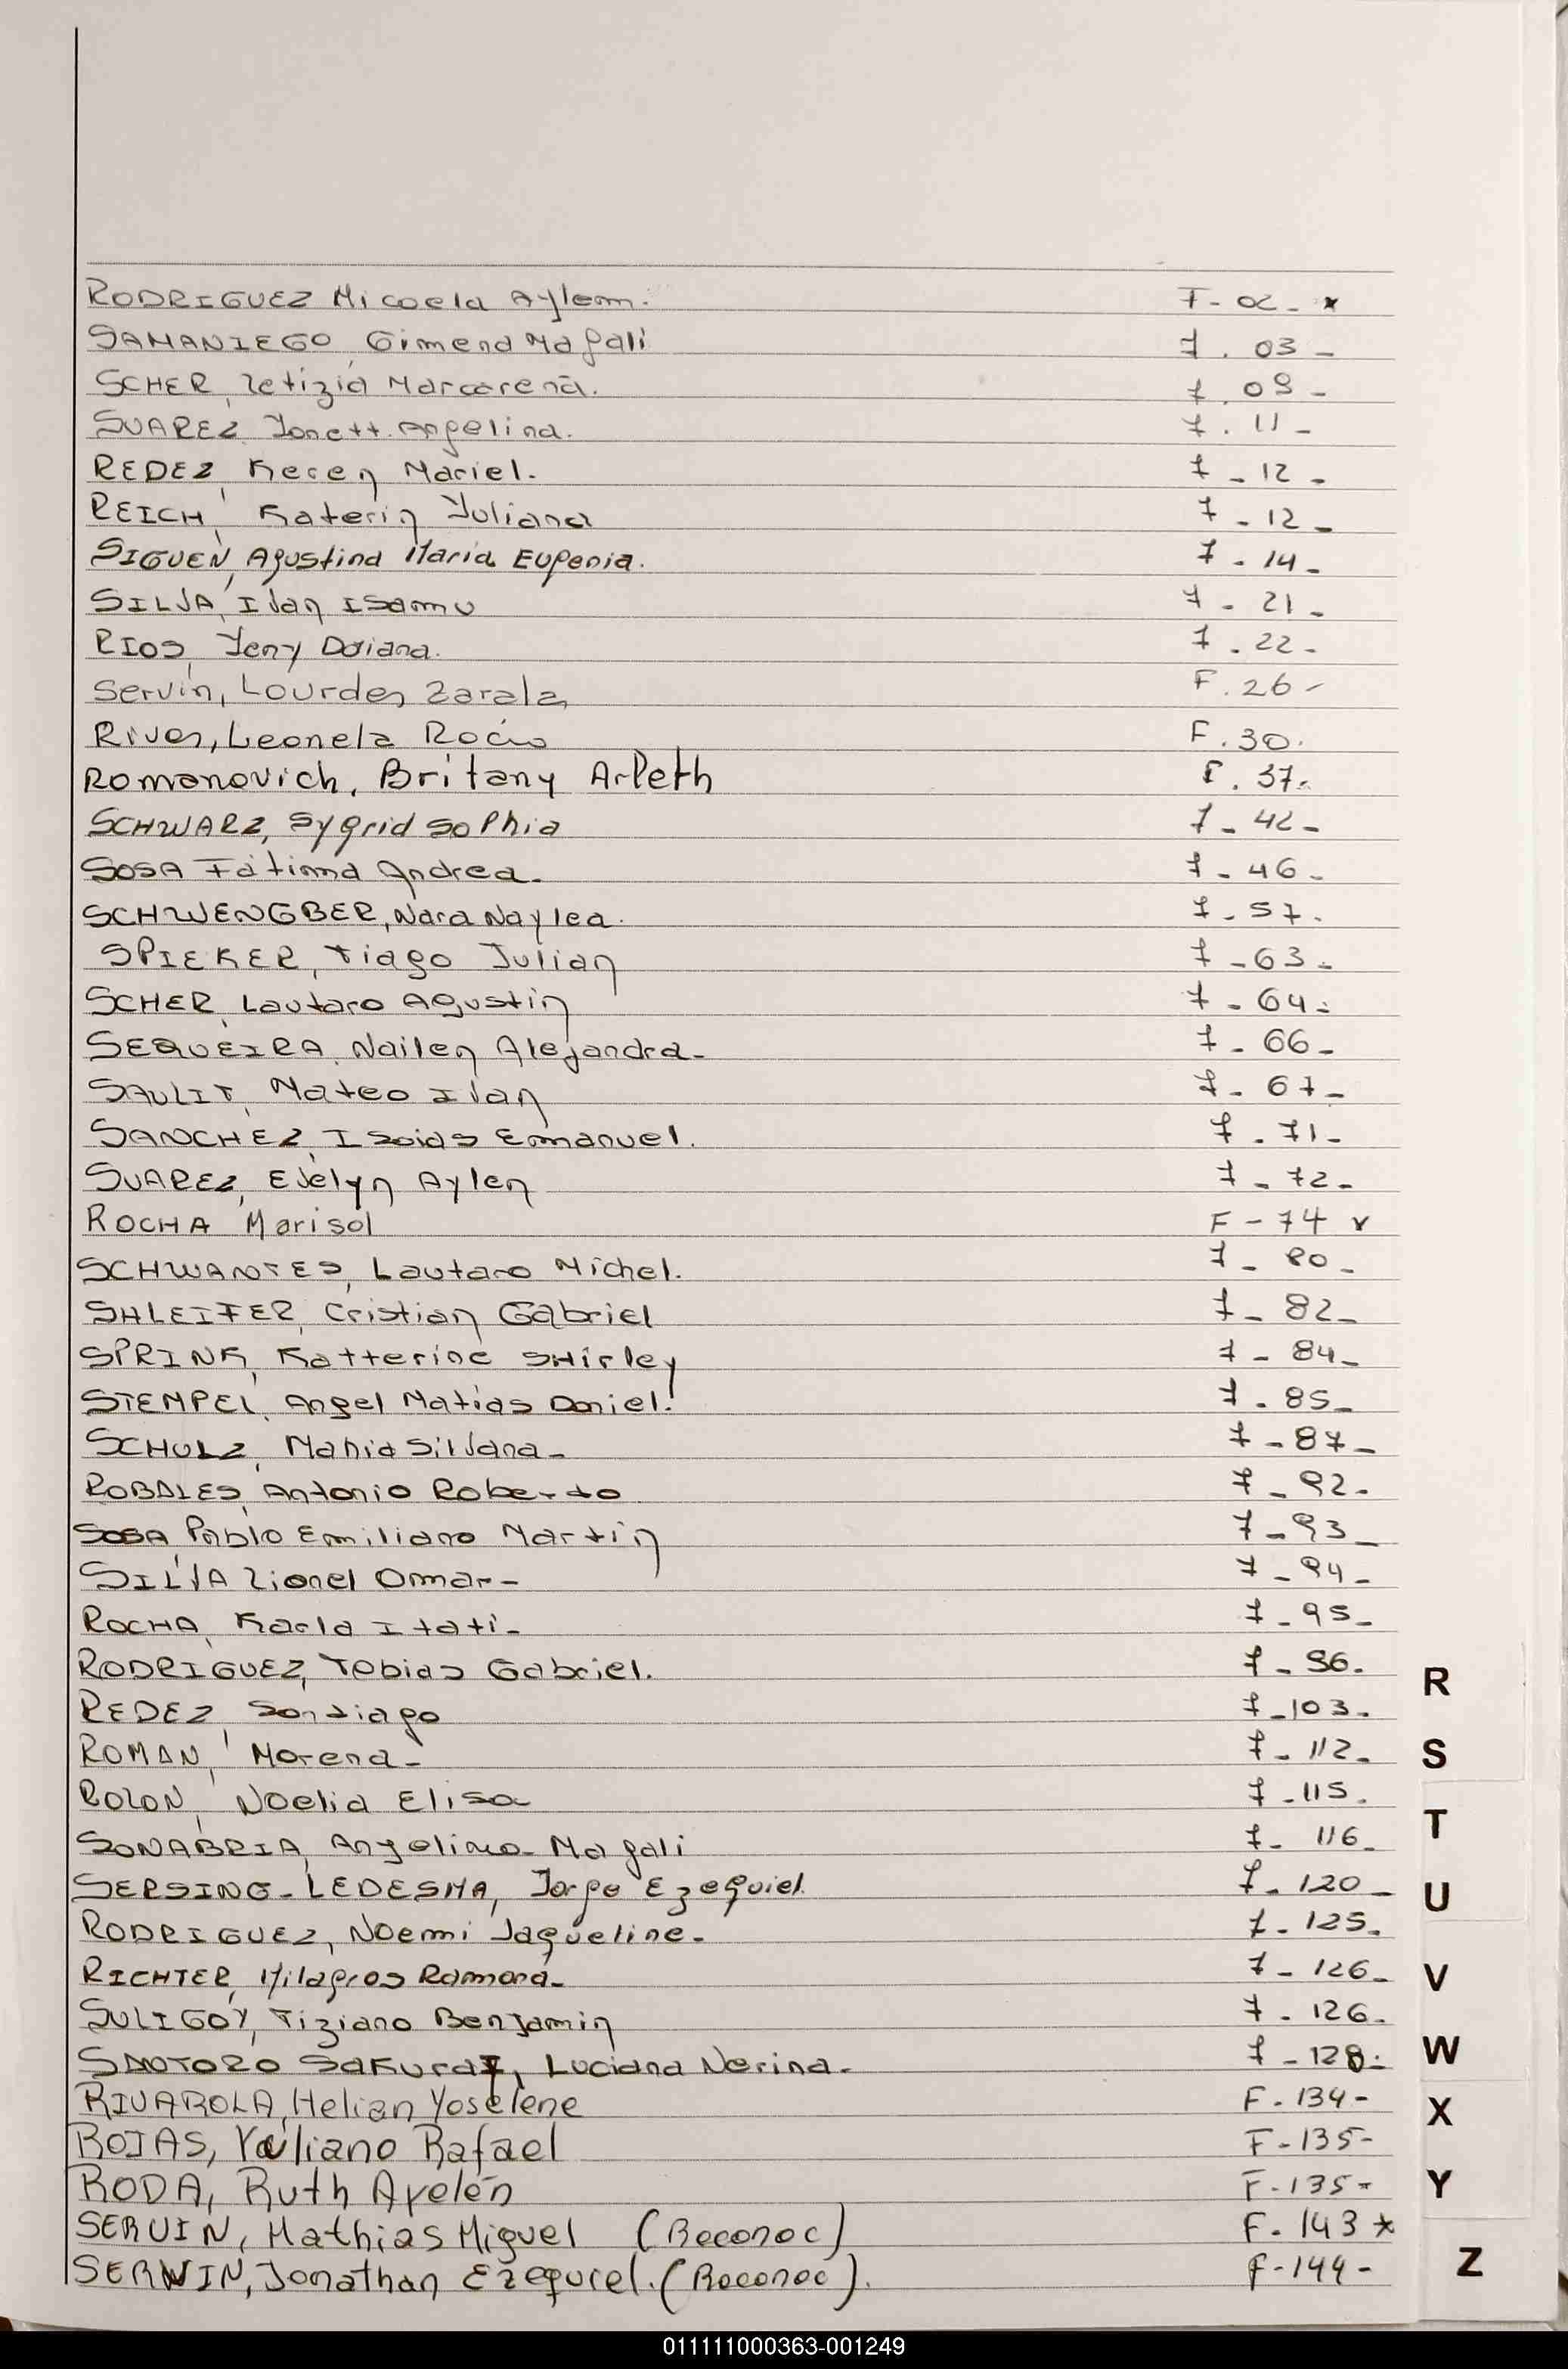 RODRIGUEZ Micaela Aylem. F-02- *
SAMANIEGO, Gimena Magali F. 03-
SCHER, Letizia Marcarena. F. 09-
SUAREZ Ionett. Angelina. F. 11-
REDEZ, Keren Mariel. F-12-
REICH, Katerin Juliana F-12-
SIGUEN, Agustina Maria Eugenia. F-14-
SILVA, Ivan Isamu F-21-
RIOS, Jeny Daiana. F.22-
Servin, Lourdes Zarala F.26-
Rivas, Leonela Rocío F.30.
Romanovich, Britany Arleth F.37.
SCHWARZ, Sygrid Sophia F-42-
SOSA Fátima Andrea. F-46-
SCHWENGBER, Nara Naylea. F-57.
SPIEKER, Tiago Julian F-63-
SCHER, Lautaro Agustin F-64-
SEQUEIRA, Nailen Alejandra- F-66-
SAULIT, Mateo Ivan F-67-
SANCHEZ, Isaias Emmanuel. F.71-
SUAREZ, Evelyn Aylen F-72-
ROCHA Marisol F-74 x
SCHWANTES, Lautaro Michel. F-80-
SHLEIFER, Cristian Gabriel F-82-
SPRINK, Katterine SHirley F-84-
STEMPEL, Angel Matias Daniel. F.85-
SCHULZ, Maria Silvana- F-87-
ROBALES, Antonio Roberto F-92-
SOSA Pablo Emiliano Martin F-93-
SILVA Lionel Omar- F-94-
ROCHA, Karla Itati- F-95-
RODRIGUEZ, Tobias Gabriel. F-96.
REDEZ, Santiago F-103-
ROMAN, Morena- F-112-
ROLON, Noelia Elisa F-115.
SONABRIA, Angelina Magali F-116-
SERSING-LEDESMA, Jorge Ezequiel F-120-
RODRIGUEZ, Noemi Jaqueline. F-125.
RICHTER, Milagros Ramona- F-126-
SULIGOY, Tiziano Benjamin F-126.
SANTORO Sakurai, Luciana Nerina- F-128-
RIVAROLA, Helian Yoselene F.134-
ROJAS, Yuliano Rafael F-135-
RODA, Ruth Ayelén F-135-
SERVIN, Mathias Miguel (Reconoc) F.143 *
SERVIN, Jonathan Ezequiel. (Reconoc). F-144-
R
S
T
U
V
W
X
Y
Z
011111000363-001249